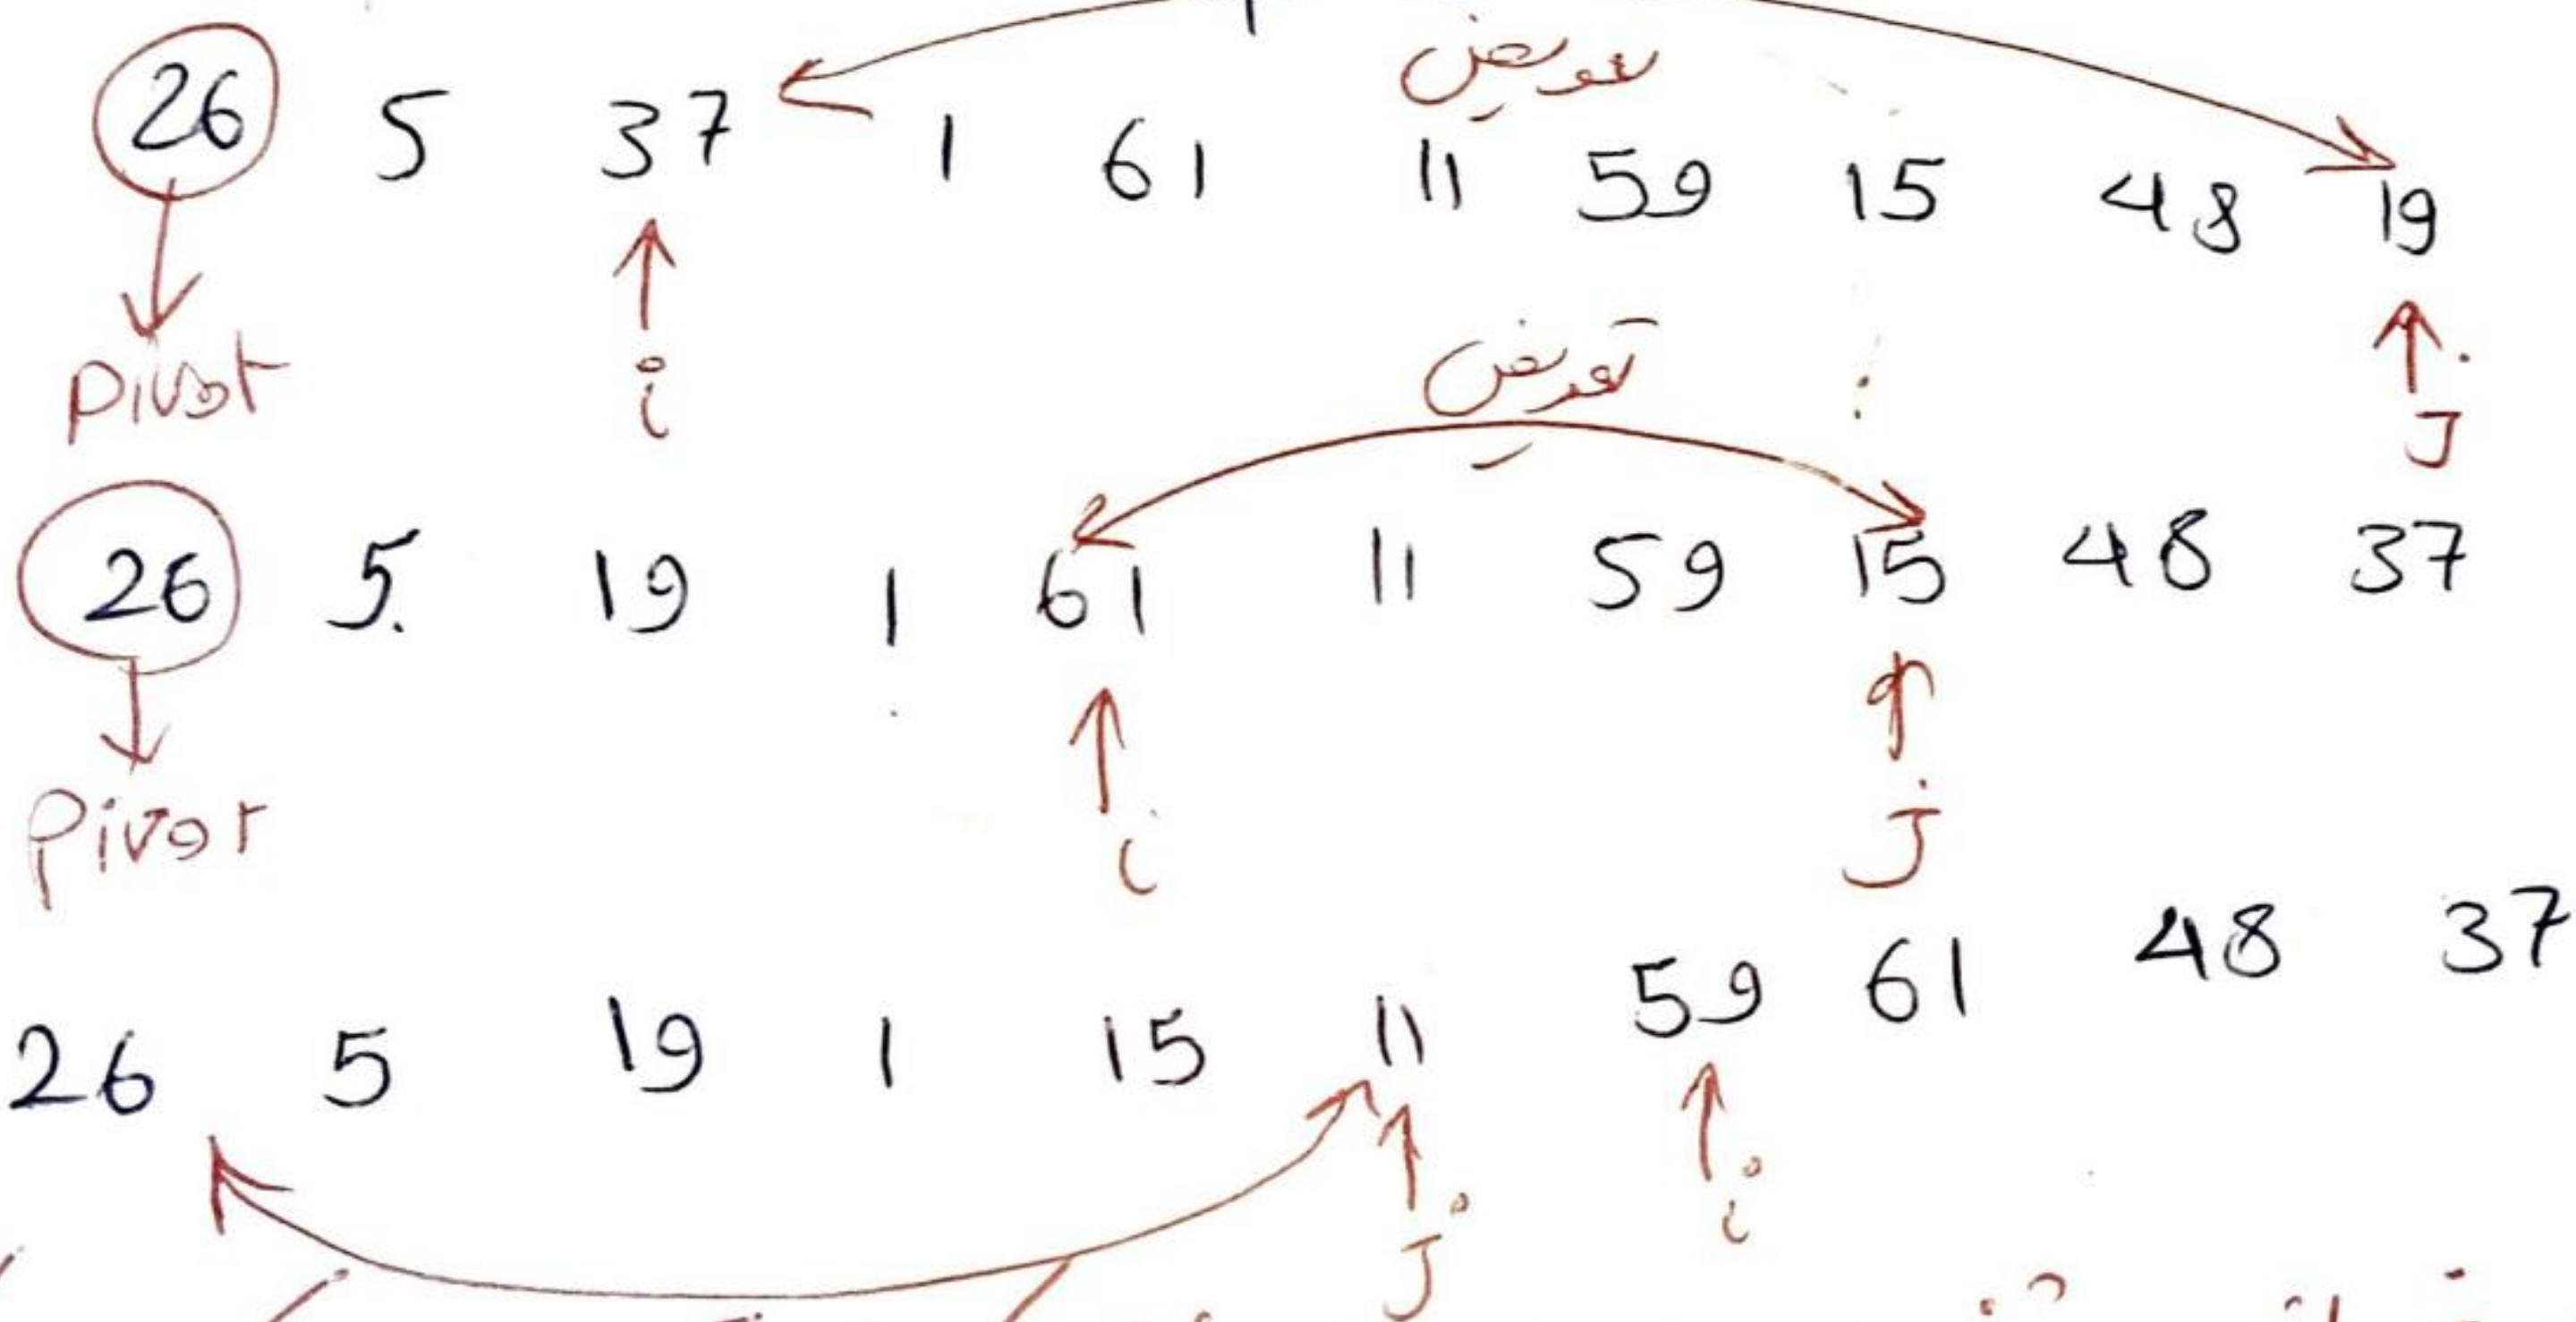 تعویض
26 5 37 1 61 11 59 15 48 19
Pivot i J
تعویض
26 5 19 1 61 11 59 15 48 37
Pivot i j
26 5 19 1 15 11 59 61 48 37
j i